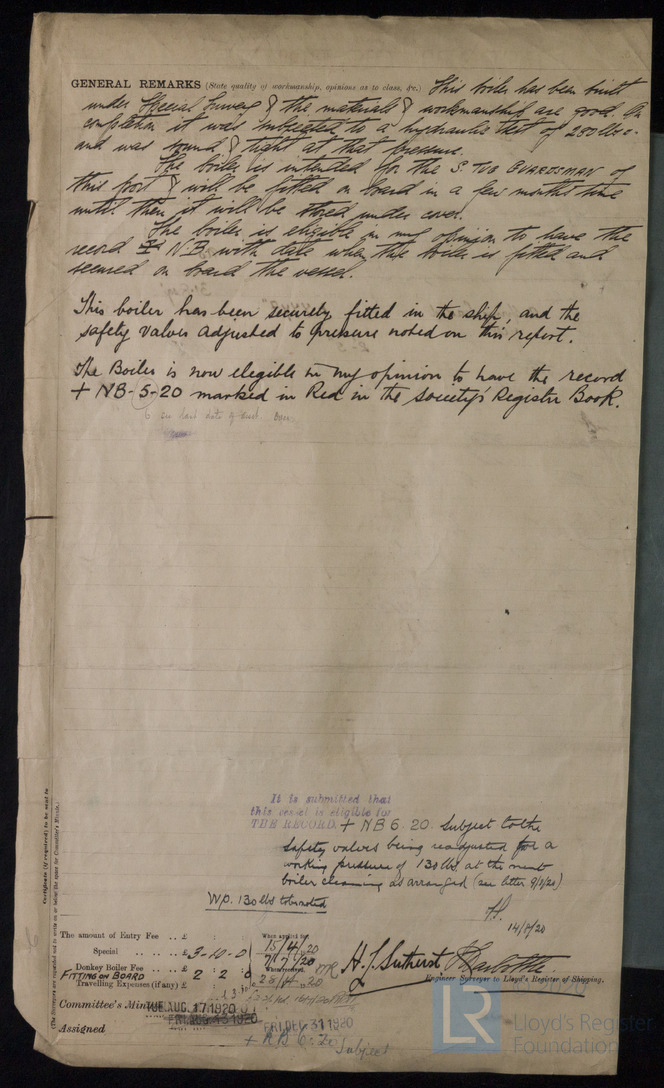 GENERAL REMARKS (State quality of workmanship, opinions as to class, &c.) This boiler has been built
under Special Survey & the materials & workmanship are good. On
completion it was subjected to a hydraulic test of 280 lbs
and was sound & tight at that pressure.
The boiler is intended for the S. TUG GUARDSMAN of
this port & will be fitted on board in a few months time
until then it will be stored under cover.
The boiler is eligible in my opinion to have the
record NB with date when this boiler is fitted and
secured on board the vessel.
This boiler has been securely fitted in the ship, and the
safety valves adjusted to pressure noted on this report.
The Boiler is now elegible in my opinion to have the record
+ NB-5-20 marked in Red in the Society's Register Book.
6 last date of
It is submitted that
this vessel is eligible for
THE RECORD. + NB 6.20. Subject to the
safety valves being readjusted for a
working pressure of 130 lbs. at the next
boiler cleaning as arranged (see letter 9/8/20)
W.P. 130 lbs to be noted
14/8/20
Certificate (if required) to be sent to
(The Surveyors are requested not to write on or below the space for Committee's Minute.)
The amount of Entry Fee .. £
Special .. £ 3-10-0
Donkey Boiler Fee .. £ 2 : 2 : 0
FITTING ON BOARD
Travelling Expenses (if any) £
When applied for,
15/4/20
7/7/20
When received,
H. J. Sutherst
Engineer Surveyor to Lloyd's Register of Shipping.
Committee's Minute TUE. AUG. 17 1920
FRI. DEC 31 1920
Assigned + NB 6.20 Subject
LR Lloyd's Register
Foundation